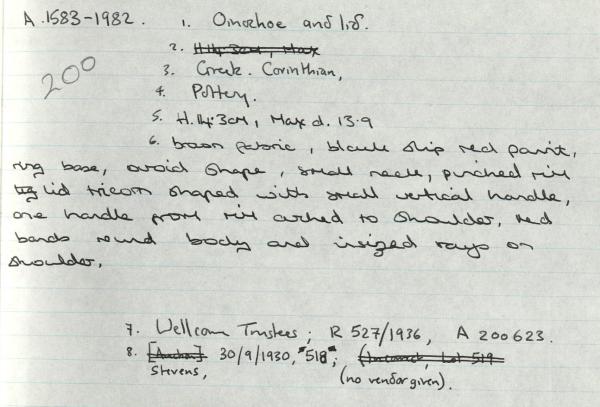 A.1583-1982. 1. Oinochoe and lid.
2. H.14.3cm, Max
200
3. Greek. Corinthian,
4. Pottery.
5. H.14.3cm, Max d. 13.9
6. brown fabric, black slip red paint,
ring base, ovoid shape, small neck, pinched rim
lid tricorn shaped with small vertical handle,
one handle from rim arched to shoulder, red
bands round body and insized rays on
shoulder.
7. Wellcome Trustees; R 527/1936, A 200623.
8. 30/9/1930, "518"; Lot 519
Stevens, (no vendor given).